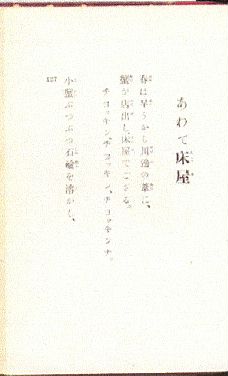 あわて床屋
春は早うから川邊の葦に、
蟹が店出し床屋でござる。
チヨッキン、チヨッキン、チヨッキンナ。
小蟹ぶつぶつ石鹼を溶かし、
127